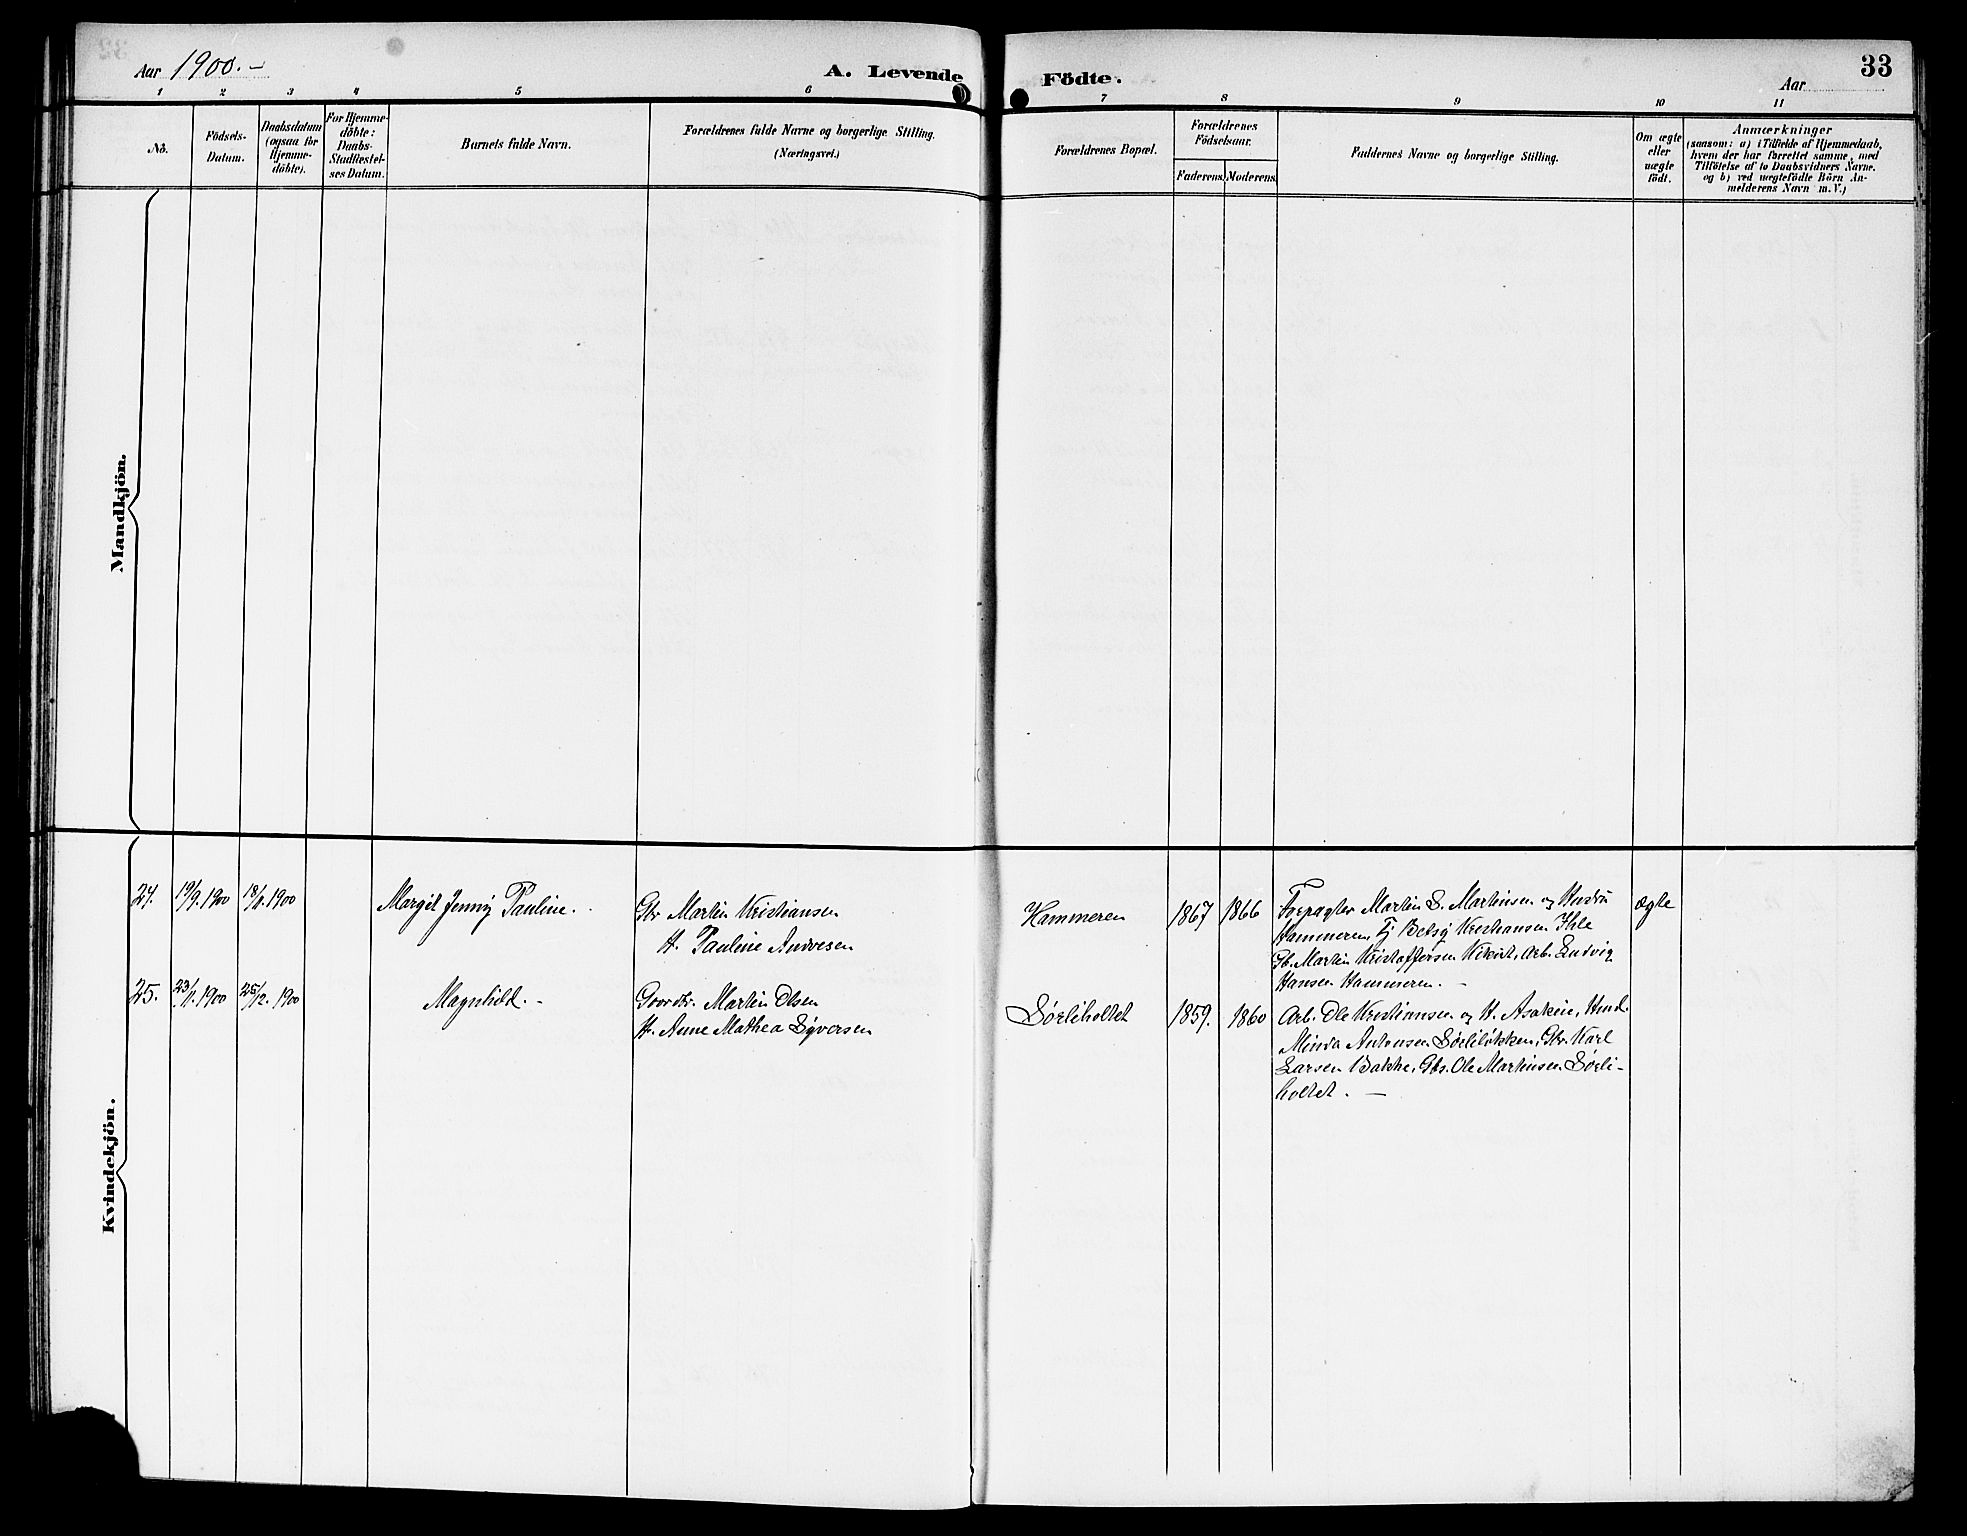 Aar 1900.-
A. Levende Födte.
Aar
33
1 2 3 4 5 6 7 8 9 10 11
No.
Födsels-
Datum.
Daabsdatum
(ogsaa for
Hjemme-
döbte).
For Hjemme-
döbte:
Daabs-
Stadfæstel-
ses Datum.
Barnets fulde Navn.
Forældrenes fulde Navne og borgerlige Stilling.
(Næringsvei.)
Forældrenes Bopæl.
Forældrenes
Födselsaar.
Faderens. Moderens.
Faddernes Navne og borgerlige Stilling.
Om ægte
eller
uægte
födt.
Anmærkninger
(saasom: a) i Tilfælde af Hjemmedaab,
hvem der har forrettet samme, med
Tilföielse af to Daabsvidners Navne.
og b) ved uægtefödte Börn An-
melderens Navn m. V.)
Mandkjön.
Kvindekjön.
24. 19/9. 1900 18/11. 1900
Margit Jenny Pauline.
Gbr Martin Kristiansen
H. Pauline Andresen
Hammeren
1867 1866
Forpagter Martin S. Martinsen og Hustru
Hammeren, Pj Betsy Kristiansen Ihle
Gb. Martin Kristoffersen, Arb. Ludvig
Hansen Hammeren. -
ægte
25. 23/11. 1900 25/12. 1900
Magnhild. -
Gaardbr. Martin Olsen
H. Anne Mathea Syversen
Sørliholtet
1859. 1860
Arb. Ole Kristiansen og H. Asakine,
Minda Antonsen Sørliløkken, Gbr. Karl
Larsen Bakke, Gbs. Ole Martinsen Sørli-
holtet. -